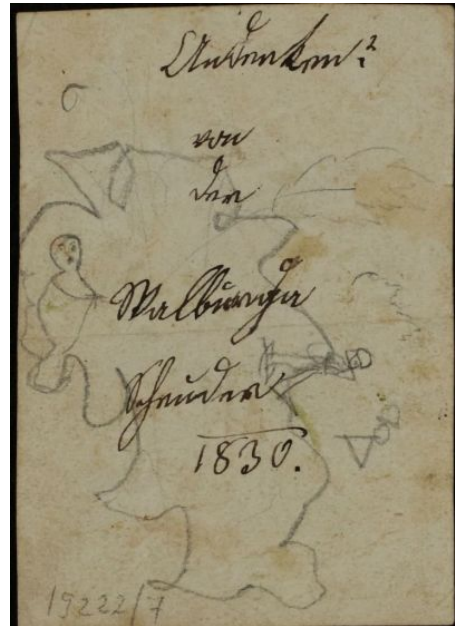 Andenken.
von
der
Walburga
Scheuder
1830.
19222/7